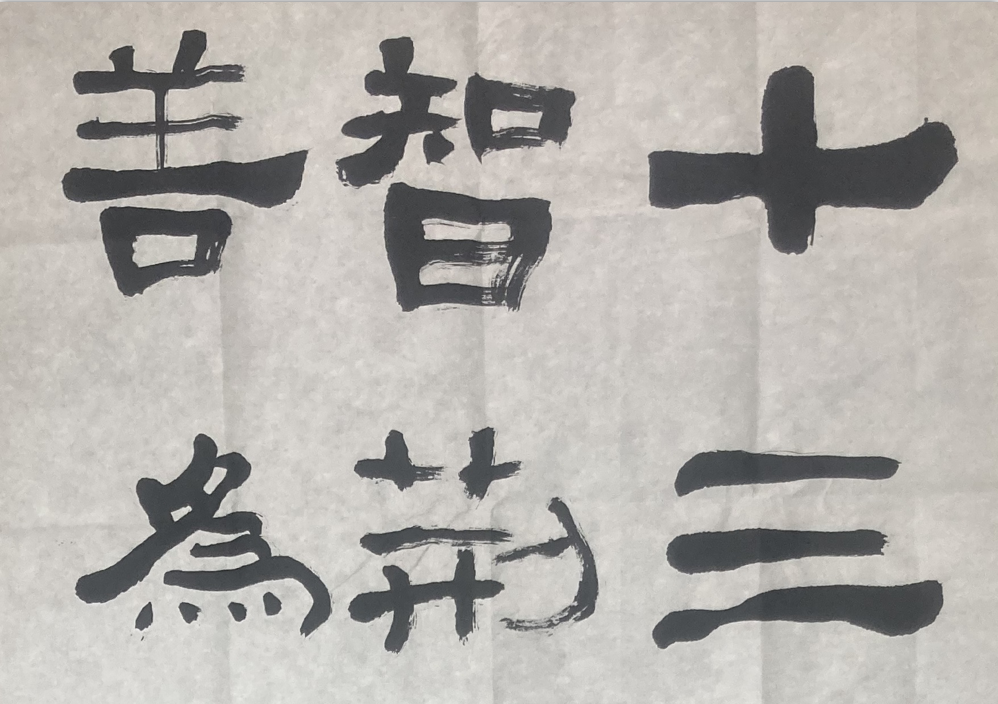 十三
智荆
善為